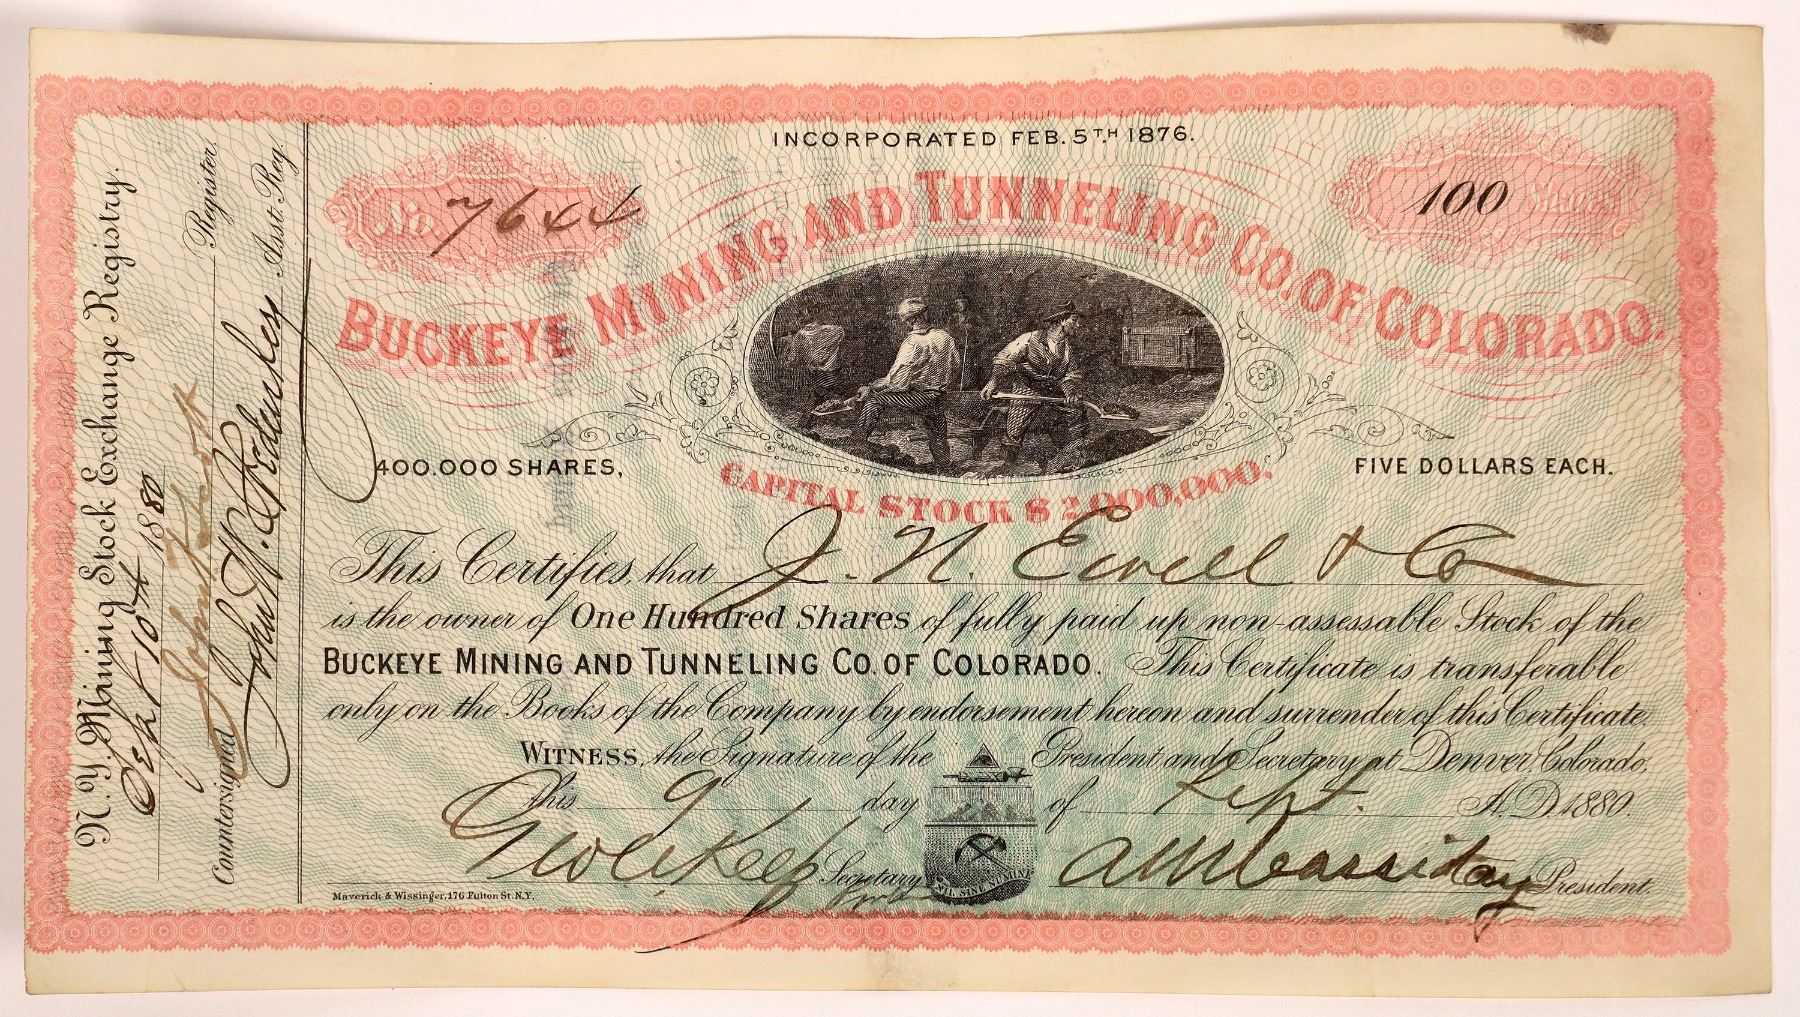 INCORPORATED FEB. 5TH 1876.
No. 7644
100 Shares
BUCKEYE MINING AND TUNNELING CO. OF COLORADO.
400.000 SHARES,
FIVE DOLLARS EACH.
CAPITAL STOCK $2,000,000.
This Certifies that J. N. Ewell & Co
is the owner of One Hundred Shares of fully paid up non-assessable Stock of the
BUCKEYE MINING AND TUNNELING CO. OF COLORADO. This Certificate is transferable
only on the Books of the Company by endorsement hereon and surrender of this Certificate.
WITNESS, the Signature of the President and Secretary at Denver, Colorado,
this 9 day of Sept. A.D. 1880.
Secretary
President.
NIL SINE NUMINE
Maverick & Wissinger, 176 Fulton St. N.Y.
N.Y. Mining Stock Exchange Registry.
Sept 10th 1880
Register.
Countersigned
Asst. Reg.